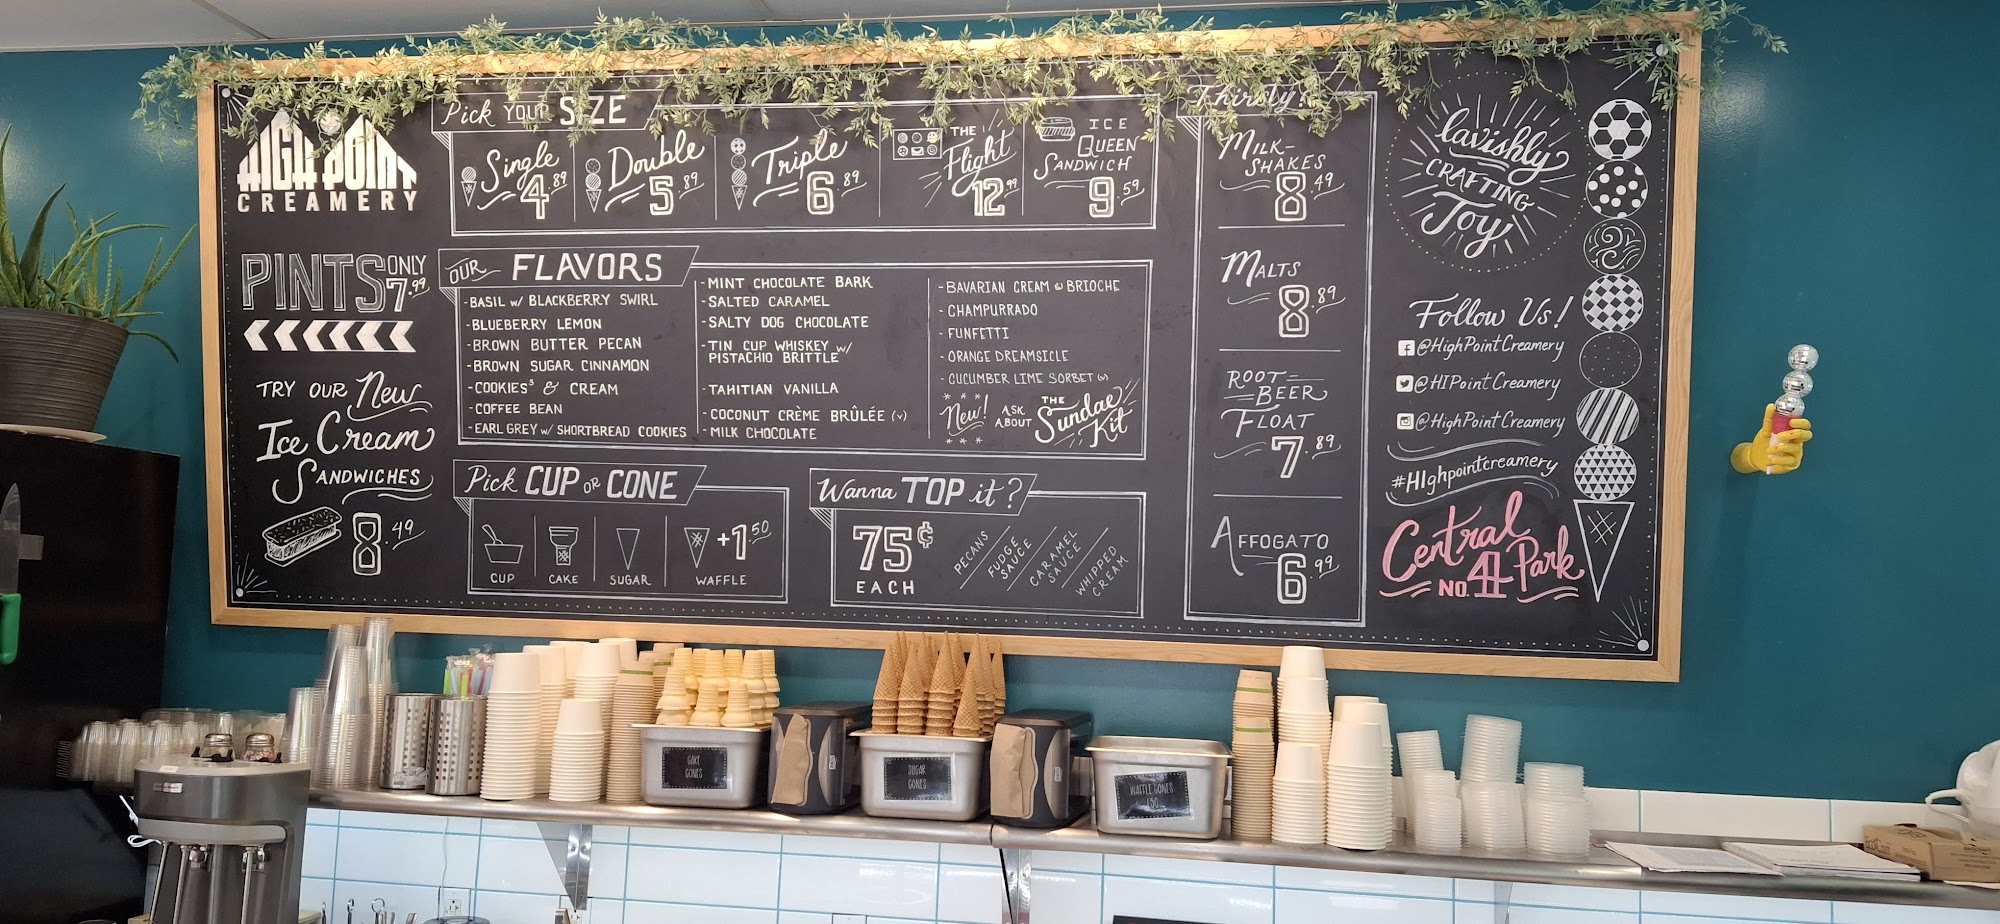 HIGH POINT
CREAMERY
PINTS ONLY
7.99
TRY OUR New
Ice Cream
SANDWICHES
8.49
Pick YOUR SIZE
Single
4.89
Double
5.89
Triple
6.89
THE
Flight
12.99
ICE
QUEEN
SANDWICH
9.59
OUR FLAVORS
-BASIL w/ BLACKBERRY SWIRL
-BLUEBERRY LEMON
-BROWN BUTTER PECAN
-BROWN SUGAR CINNAMON
-COOKIES³ & CREAM
-COFFEE BEAN
-EARL GREY w/ SHORTBREAD COOKIES
-MINT CHOCOLATE BARK
-SALTED CARAMEL
-SALTY DOG CHOCOLATE
-TIN CUP WHISKEY w/
PISTACHIO BRITTLE
-TAHITIAN VANILLA
-COCONUT CRÈME BRÛLÉE (v)
-MILK CHOCOLATE
-BAVARIAN CREAM w BRIOCHE
-CHAMPURRADO
-FUNFETTI
-ORANGE DREAMSICLE
-CUCUMBER LIME SORBET (v)
New! ASK
ABOUT
THE
Sundae
Kit
Pick CUP OR CONE
CUP
CAKE
SUGAR
WAFFLE
+1.50
Wanna TOP it?
75¢
EACH
PECANS
FUDGE
SAUCE
CARAMEL
SAUCE
WHIPPED
CREAM
Thirsty?
MILK-
SHAKES
8.49
MALTS
8.89
ROOT
BEER
FLOAT
7.89
AFFOGATO
6.99
lavishly
CRAFTING
Joy
Follow Us!
@HighPointCreamery
@HIPointCreamery
@HighPointCreamery
#HIghpointcreamery
Central
Park
NO. 41
CAKE
CONES
SUGAR
CONES
WAFFLE CONES
1.50